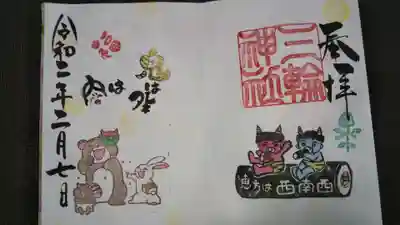 奉拝
三輪
神社
恵方は西南西
鬼は外
福は内
令和二年二月七日